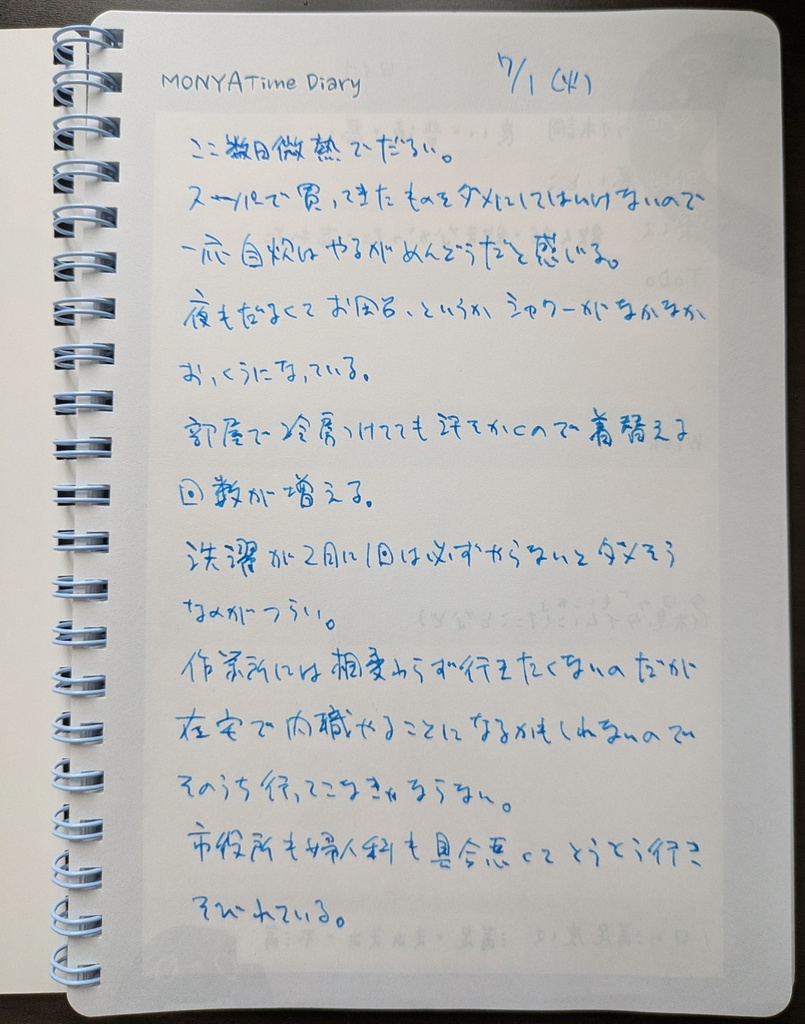 MONYATime Diary
7/1 (火)
ここ数日微熱でだるい。
スーパーで買ってきたものをダメにしてはいけないので
一応自炊はやるがめんどうだと感じる。
夜もだるくてお風呂、というかシャワーがなかなか
おっくうになっている。
部屋で冷房つけてても汗をかくので着替える
回数が増える。
洗濯が2日に1回は必ずやらないとダメそう
なのがつらい。
作業所には相変わらず行きたくないのだが
在宅で内職やることになるかもしれないので
そのうち行ってこなきゃならない。
市役所も婦人科も具合悪くてとうとう行き
そびれている。